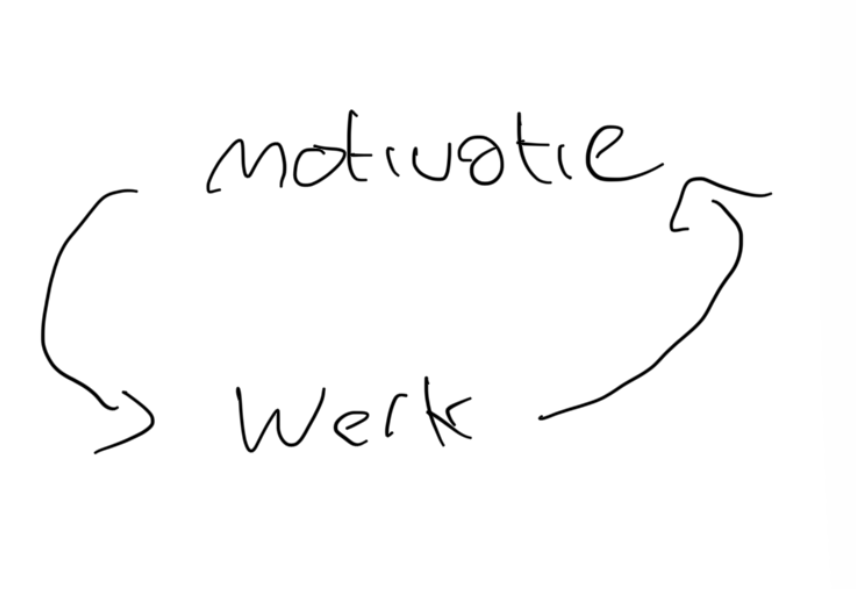 motivatie
Werk